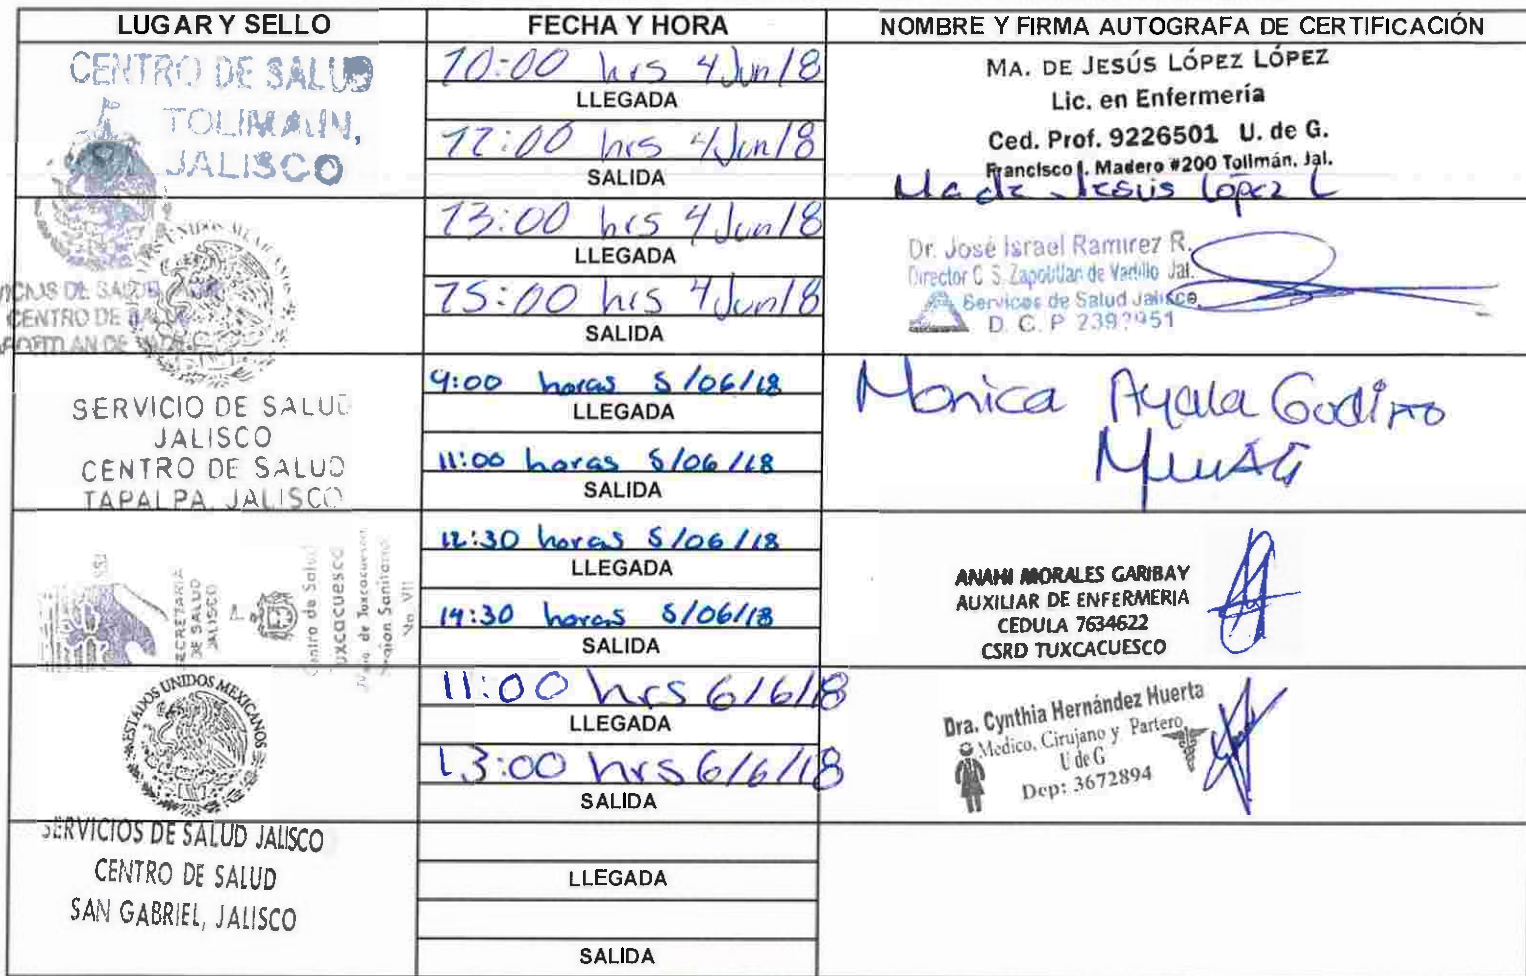 LUGAR Y SELLO
FECHA Y HORA
NOMBRE Y FIRMA AUTOGRAFA DE CERTIFICACIÓN
CENTRO DE SALUD
TOLIMAN,
JALISCO
10:00 hrs 4 Jun/8
LLEGADA
12:00 hrs 4 Jun/8
SALIDA
MA. DE JESÚS LÓPEZ LÓPEZ
Lic. en Enfermería
Ced. Prof. 9226501 U. de G.
Francisco I. Madero #200 Tolimán, Jal.
Ma de Jesús López L
CENTRO DE SALUD
13:00 hrs 4 Jun/8
LLEGADA
15:00 hrs 4 Jun/8
SALIDA
Dr. José Israel Ramírez R.
Director C. S. Zapotitlan de Vadillo Jal.
Servicos de Salud Jalisco
D. C. P
SERVICIO DE SALUD
JALISCO
CENTRO DE SALUD
TAPALPA, JALISCO
9:00 horas 5/06/18
LLEGADA
11:00 horas 5/06/18
SALIDA
Monica Ayala Godino
SECRETARIA
DE SALUD
JALISCO
Centro de Salud
Tuxcacuesco
Region Sanitaria
No VII
12:30 horas 5/06/18
LLEGADA
14:30 horas 5/06/18
SALIDA
ANAHI MORALES GARIBAY
AUXILIAR DE ENFERMERIA
CEDULA 7634622
CSRD TUXCACUESCO
ESTADOS UNIDOS MEXICANOS
11:00 hrs 6/6/18
LLEGADA
13:00 hrs 6/6/18
SALIDA
Dra. Cynthia Hernández Huerta
Medico, Cirujano y Partero
U de G
Dep: 3672894
SERVICIOS DE SALUD JALISCO
CENTRO DE SALUD
SAN GABRIEL, JALISCO
LLEGADA
SALIDA